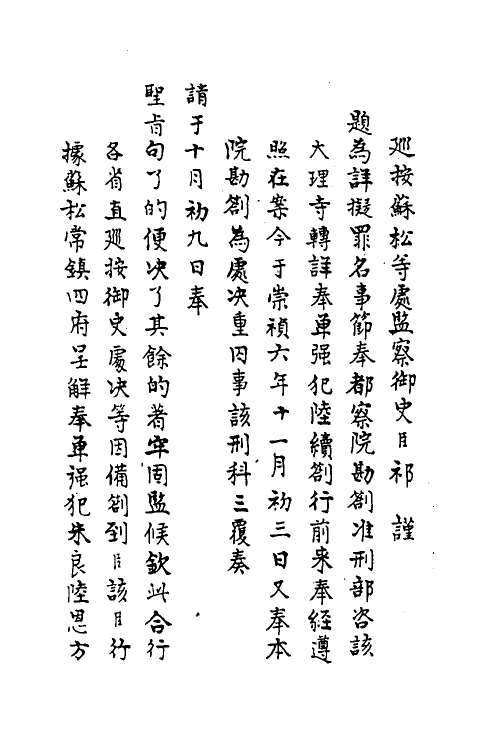 廵按蘇松等處監察御史臣祁 謹
題為詳擬罪名事節奉都察院勘劄准刑部咨該
大理寺轉詳奉单强犯陸續劄行前来奉經遵
照在案今于崇禎六年十一月初三日又奉本
院勘劄為處决重囚事該刑科三覆奏
請于十月初九日奉
聖旨句了的便决了其餘的著牢固監候欽此合行
各省直廵按御史處决等因備劄到臣該臣行
據蘇松常鎮四府呈解奉单强犯朱良陸思方